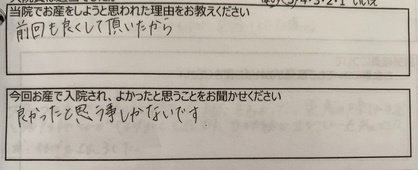 はい 5・4・3・2・1 いいえ
当院でお産をしようと思われた理由をお教えください
前回も良くして頂いたから
今回お産で入院され、よかったと思うことをお聞かせください
良かったと思う事しかないです。